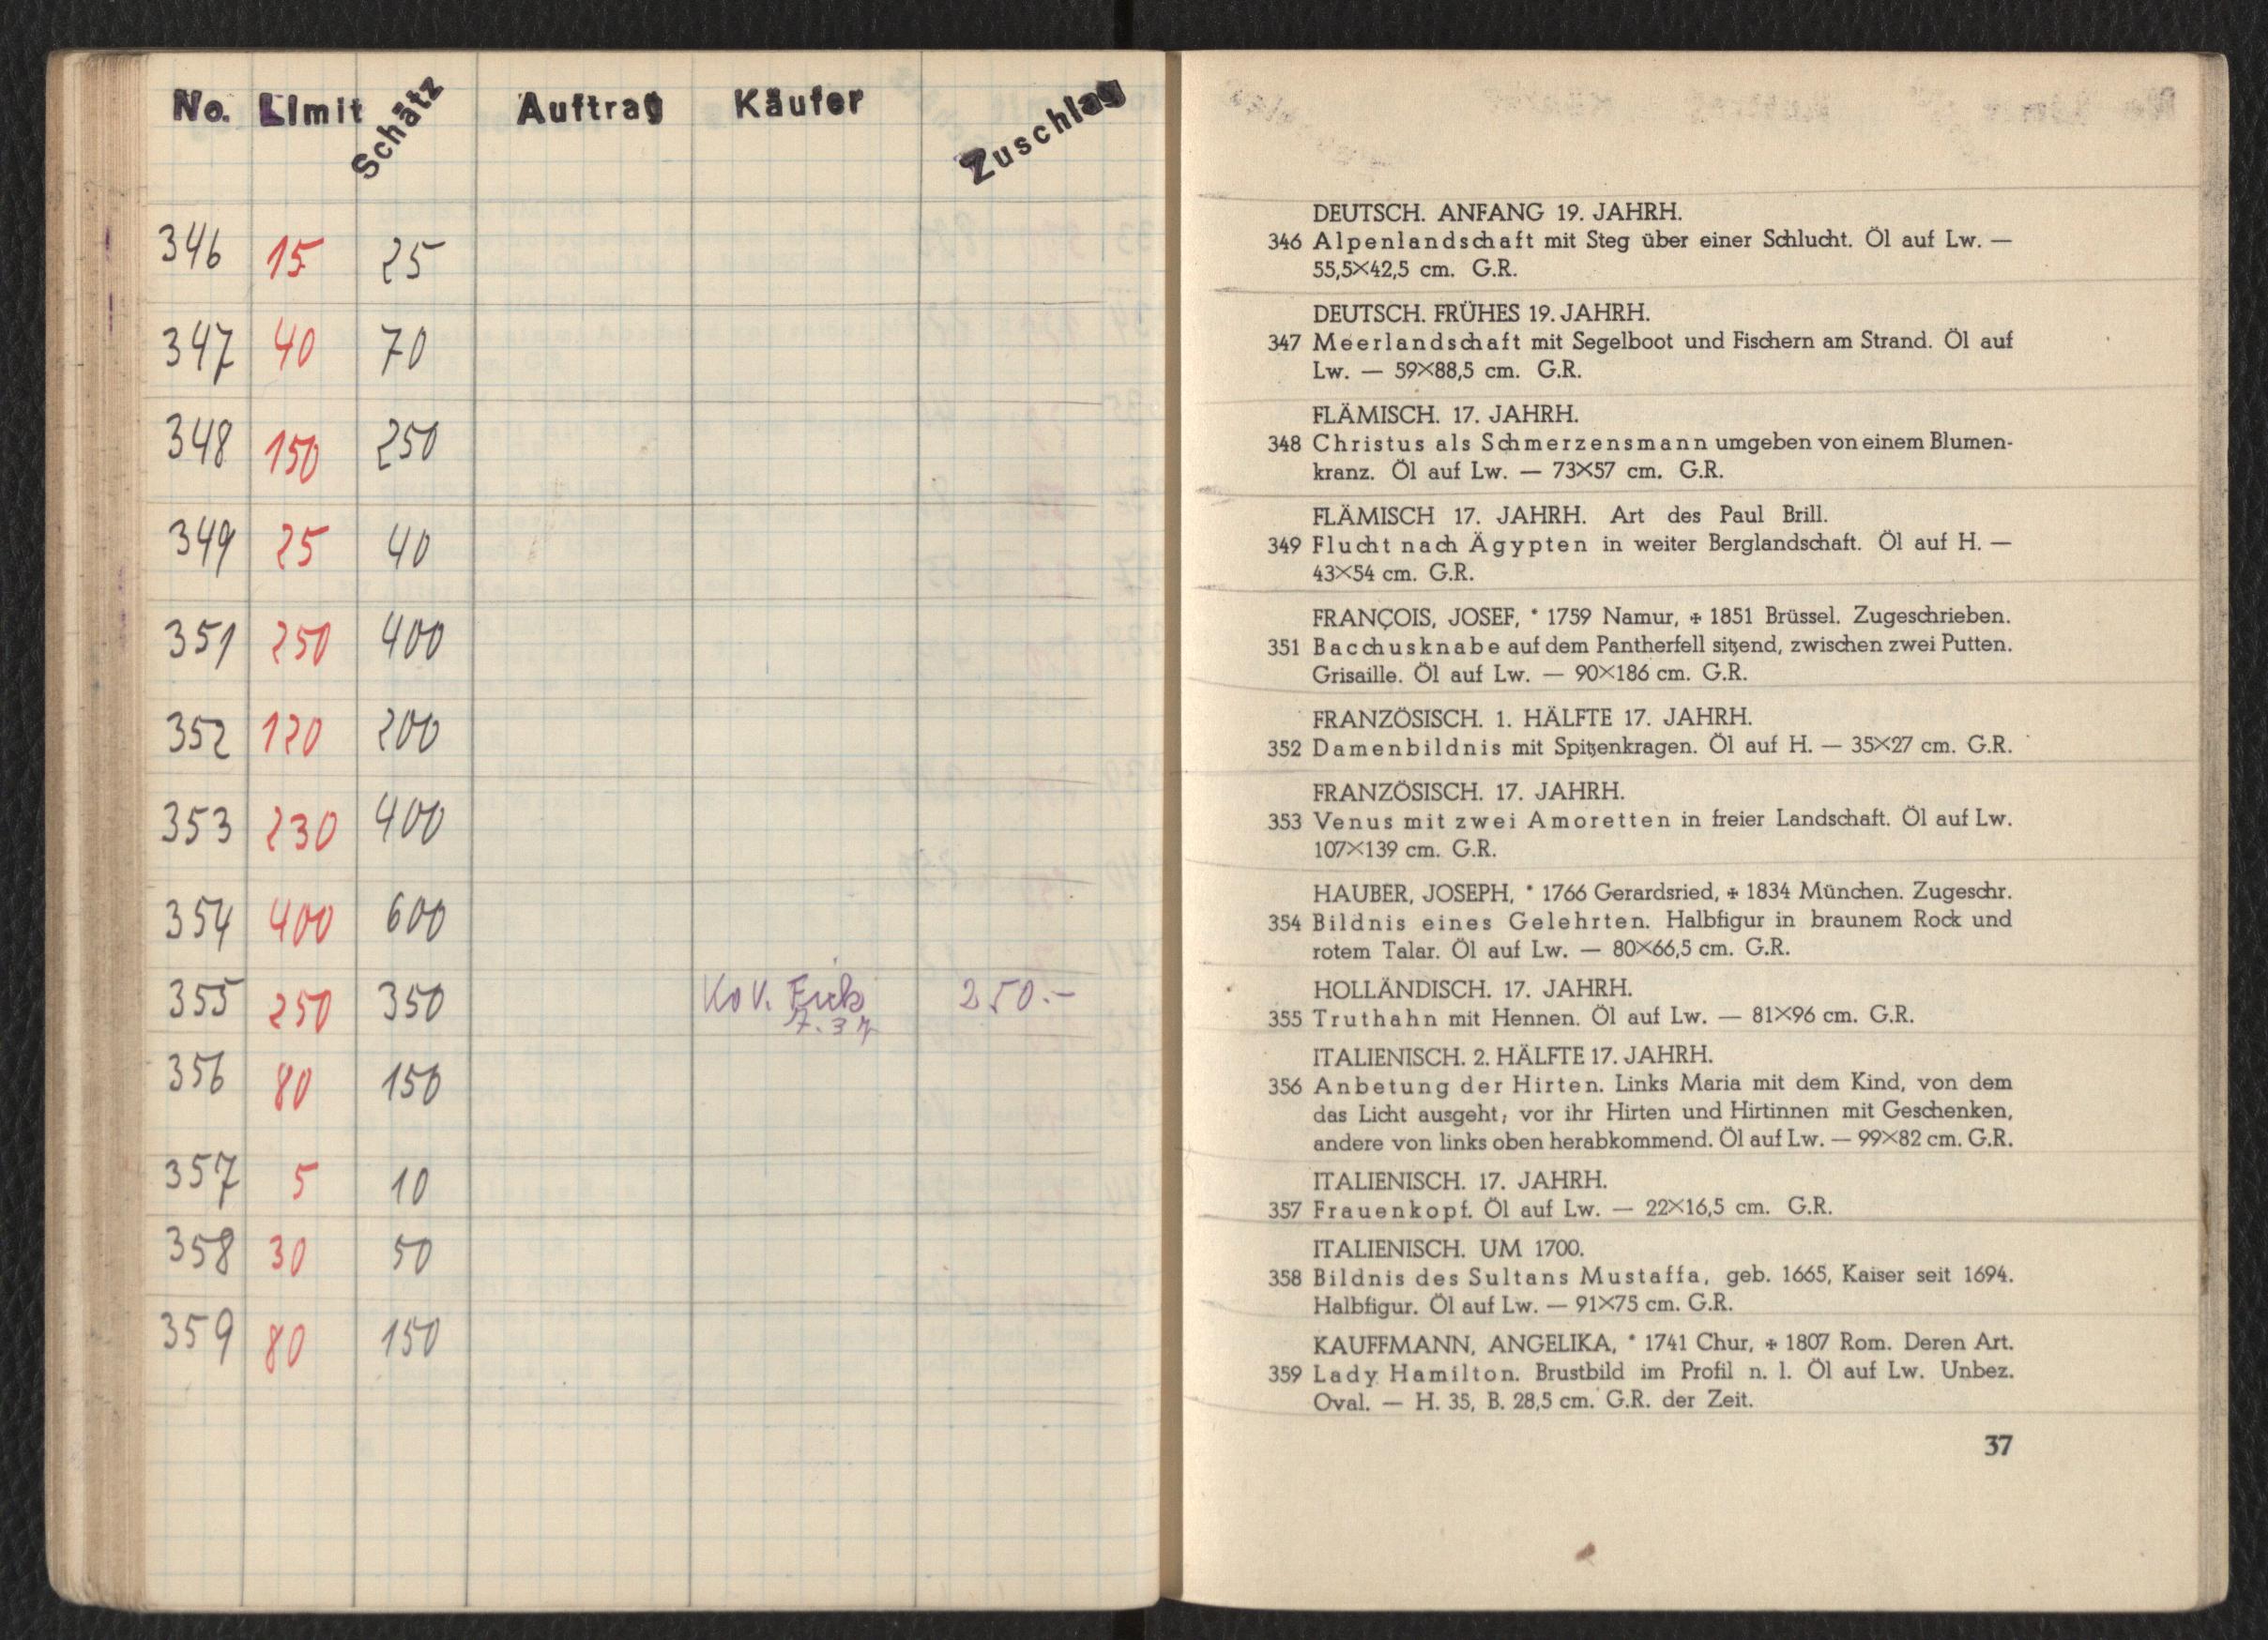 No. Limit Schätz Auftrag Käufer Zuschlag
346 15 25
347 40 70
348 150 250
349 25 40
351 250 400
352 120 200
353 230 400
354 400 600
355 250 350 250.-
356 80 150
357 5 10
358 30 50
359 80 150
DEUTSCH. ANFANG 19. JAHRH.
346 Alpenlandschaft mit Steg über einer Schlucht. Öl auf Lw. —
55,5×42,5 cm. G.R.
DEUTSCH. FRÜHES 19. JAHRH.
347 Meerlandschaft mit Segelboot und Fischern am Strand. Öl auf
Lw. — 59×88,5 cm. G.R.
FLÄMISCH. 17. JAHRH.
348 Christus als Schmerzensmann umgeben von einem Blumen-
kranz. Öl auf Lw. — 73×57 cm. G.R.
FLÄMISCH 17. JAHRH. Art des Paul Brill.
349 Flucht nach Ägypten in weiter Berglandschaft. Öl auf H. —
43×54 cm. G.R.
FRANÇOIS, JOSEF, * 1759 Namur, ✢ 1851 Brüssel. Zugeschrieben.
351 Bacchusknabe auf dem Pantherfell sitzend, zwischen zwei Putten.
Grisaille. Öl auf Lw. — 90×186 cm. G.R.
FRANZÖSISCH. 1. HÄLFTE 17. JAHRH.
352 Damenbildnis mit Spitzenkragen. Öl auf H. — 35×27 cm. G.R.
FRANZÖSISCH. 17. JAHRH.
353 Venus mit zwei Amoretten in freier Landschaft. Öl auf Lw.
107×139 cm. G.R.
HAUBER, JOSEPH, * 1766 Gerardsried, ✢ 1834 München. Zugeschr.
354 Bildnis eines Gelehrten. Halbfigur in braunem Rock und
rotem Talar. Öl auf Lw. — 80×66,5 cm. G.R.
HOLLÄNDISCH. 17. JAHRH.
355 Truthahn mit Hennen. Öl auf Lw. — 81×96 cm. G.R.
ITALIENISCH. 2. HÄLFTE 17. JAHRH.
356 Anbetung der Hirten. Links Maria mit dem Kind, von dem
das Licht ausgeht; vor ihr Hirten und Hirtinnen mit Geschenken,
andere von links oben herabkommend. Öl auf Lw. — 99×82 cm. G.R.
ITALIENISCH. 17. JAHRH.
357 Frauenkopf. Öl auf Lw. — 22×16,5 cm. G.R.
ITALIENISCH. UM 1700.
358 Bildnis des Sultans Mustaffa, geb. 1665, Kaiser seit 1694.
Halbfigur. Öl auf Lw. — 91×75 cm. G.R.
KAUFFMANN, ANGELIKA, * 1741 Chur, ✢ 1807 Rom. Deren Art.
359 Lady Hamilton. Brustbild im Profil n. l. Öl auf Lw. Unbez.
Oval. — H. 35, B. 28,5 cm. G.R. der Zeit.
37